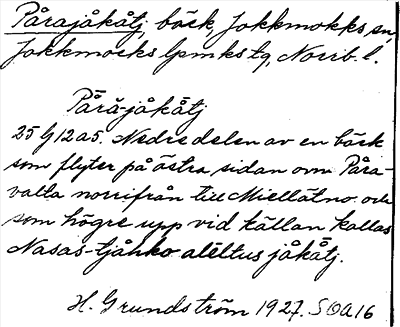 Pårajåkåtj, bäck, Jokkmokks sn,
Jokkmokks lpmks tg, Norrb. l.
Pårā-jåkåtj
25 G 12 a 5. Nedre delen av en bäck
som flyter på östra sidan om Påra-
valta norrifrån till Miellätno och
som högre upp vid källan kallas
Nasas-tjåhko alēltus jåkåtj.
H. Grundström 1927. SOA 16